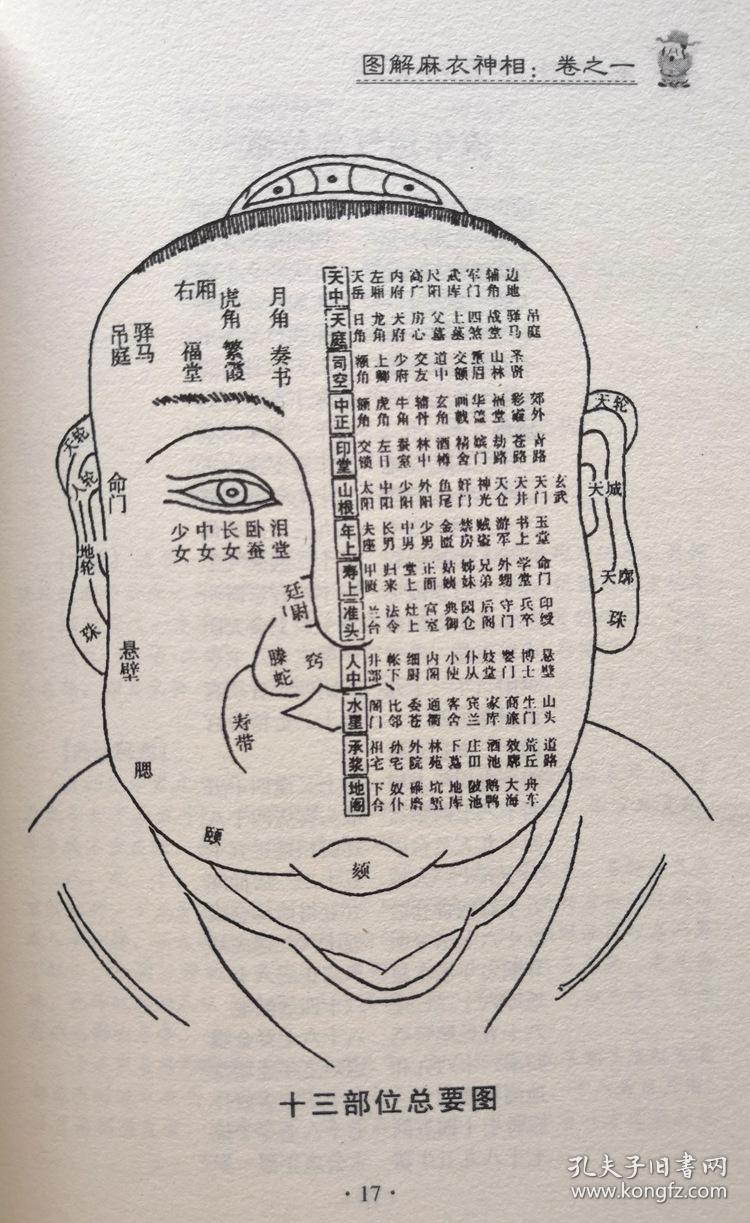 图解麻衣神相：卷之一
右厢
虎角
月角
吊庭
驿马
福堂
繁霞
奏书
天中 天岳 左厢 内府 高广 尺阳 武库 军门 辅角 边地
天庭 日角 龙角 天府 房心 父墓 上墓 四煞 战堂 驿马 吊庭
司空 额角 上卿 少府 交友 道中 交额 重眉 山林 圣贤
中正 额角 虎角 牛角 辅骨 玄角 画戟 华盖 福堂 彩霞 郊外
印堂 交锁 左日 蚕室 林中 酒樽 精舍 嫔门 劫路 苍路 青路
山根 太阳 中阳 少阳 外阳 鱼尾 奸门 神光 天仓 天井 天门 玄武
年上 夫座 长男 中男 少男 金匮 禁房 贼盗 游军 书上 玉堂
寿上 甲匮 归来 堂上 正面 姑姨 姊妹 兄弟 外甥 学堂 命门
准头 兰台 法令 灶上 宫室 典御 园仓 后阁 守门 兵卒 印绶
人中 井部 帐下 细厨 内阁 小使 仆从 妓堂 婴门 博士 悬壁
水星 阁门 比邻 委苍 通衢 客舍 宾兰 家库 商旅 生门 山头
承浆 祖宅 孙宅 外院 林苑 下墓 庄田 酒池 效廓 荒丘 道路
地阁 下台 奴仆 碓磨 坑堑 地库 陂池 鹅鸭 大海 舟车
天轮
人轮
地轮
珠
命门
少女
中女
长女
卧蚕
泪堂
天轮
天城
天廓
珠
廷尉
螣蛇
窍
悬壁
寿带
腮
颐
颏
十三部位总要图
·17·
孔夫子旧书网
www.kongfz.com